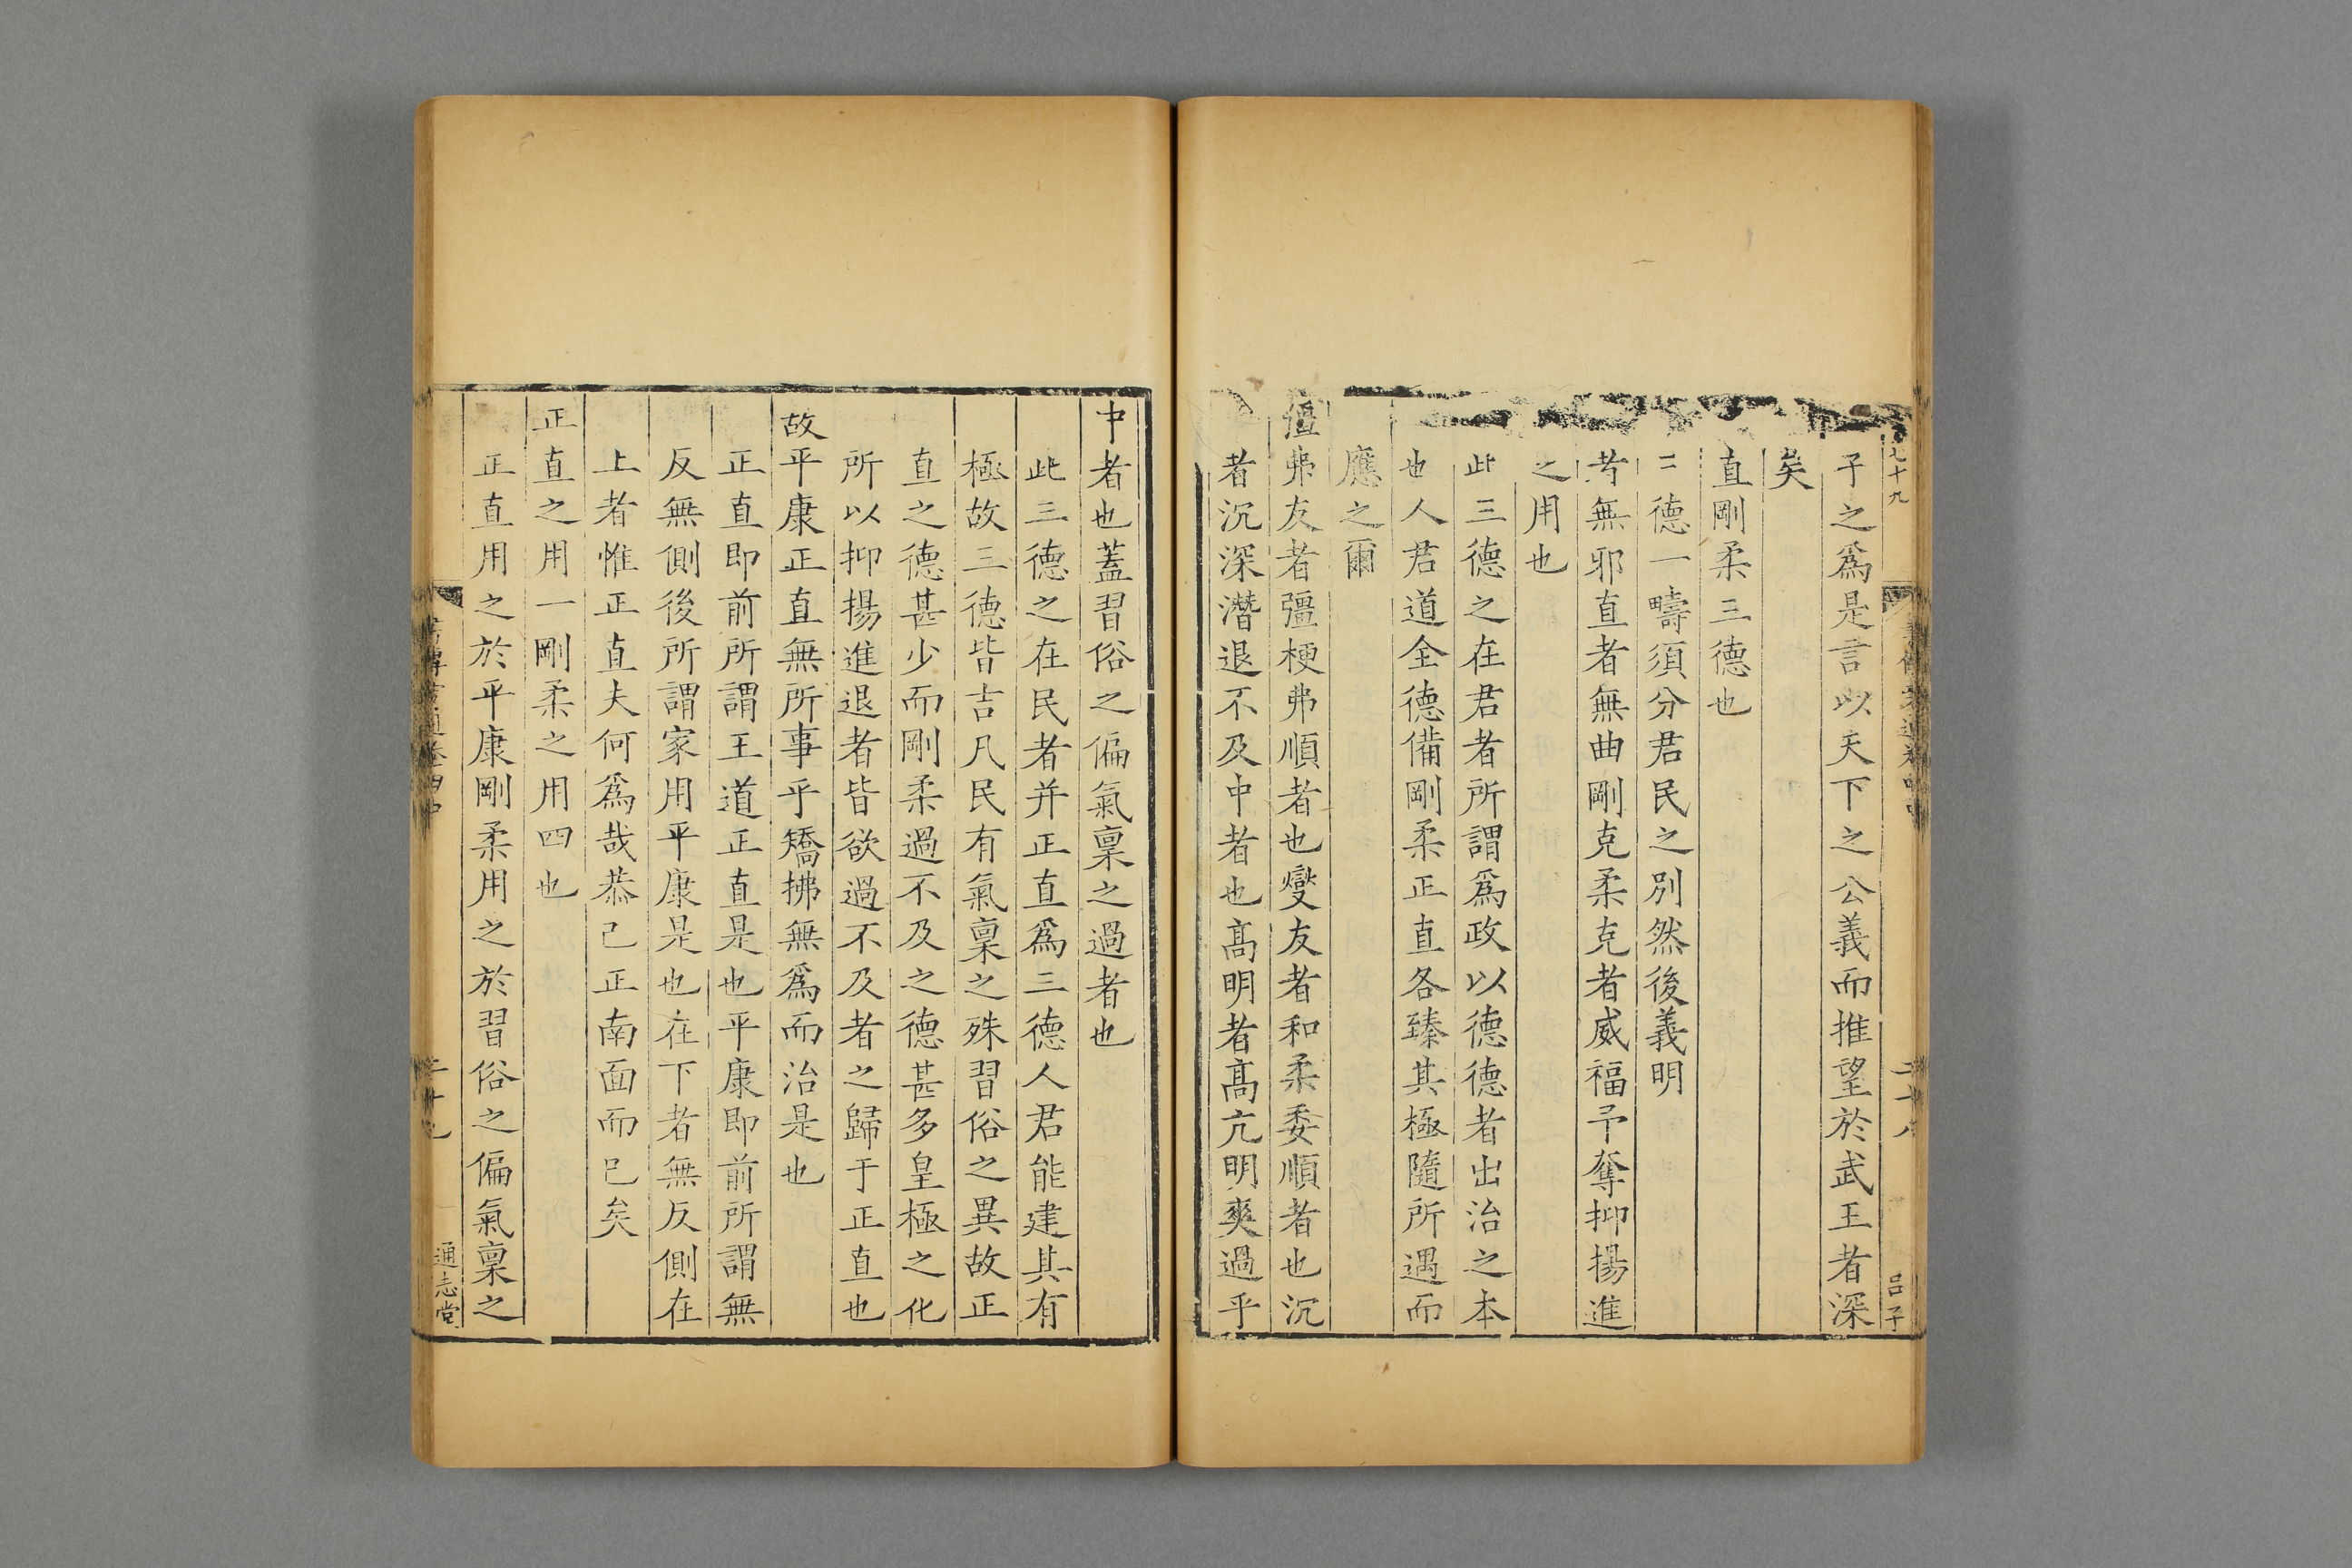 七十九
二十八
呂子
子之為是言以天下之公義而推望於武王者深
矣
直剛柔三德也
德一疇須分君民之別然後義明
無邪直者無曲剛克柔克者威福予奪抑揚進
之用也
此三德之在君者所謂為政以德德者出治之本
也人君道全德備剛柔正直各臻其極隨所遇而
應之爾
彊弗友者彊梗弗順者也燮友者和柔委順者也沉
者沉深潛退不及中者也髙明者髙亢明爽過乎
中者也蓋習俗之偏氣稟之過者也
此三德之在民者并正直為三德人君能建其有
極故三德皆吉凡民有氣稟之殊習俗之異故正
直之德甚少而剛柔過不及之德甚多皇極之化
所以抑揚進退者皆欲過不及者之歸于正直也
故平康正直無所事乎矯拂無爲而治是也
正直即前所謂王道正直是也平康即前所謂無
反無側後所謂家用平康是也在下者無反側在
上者惟正直夫何爲哉恭己正南面而已矣
正直之用一剛柔之用四也
正直用之於平康剛柔用之於習俗之偏氣稟之
通志堂